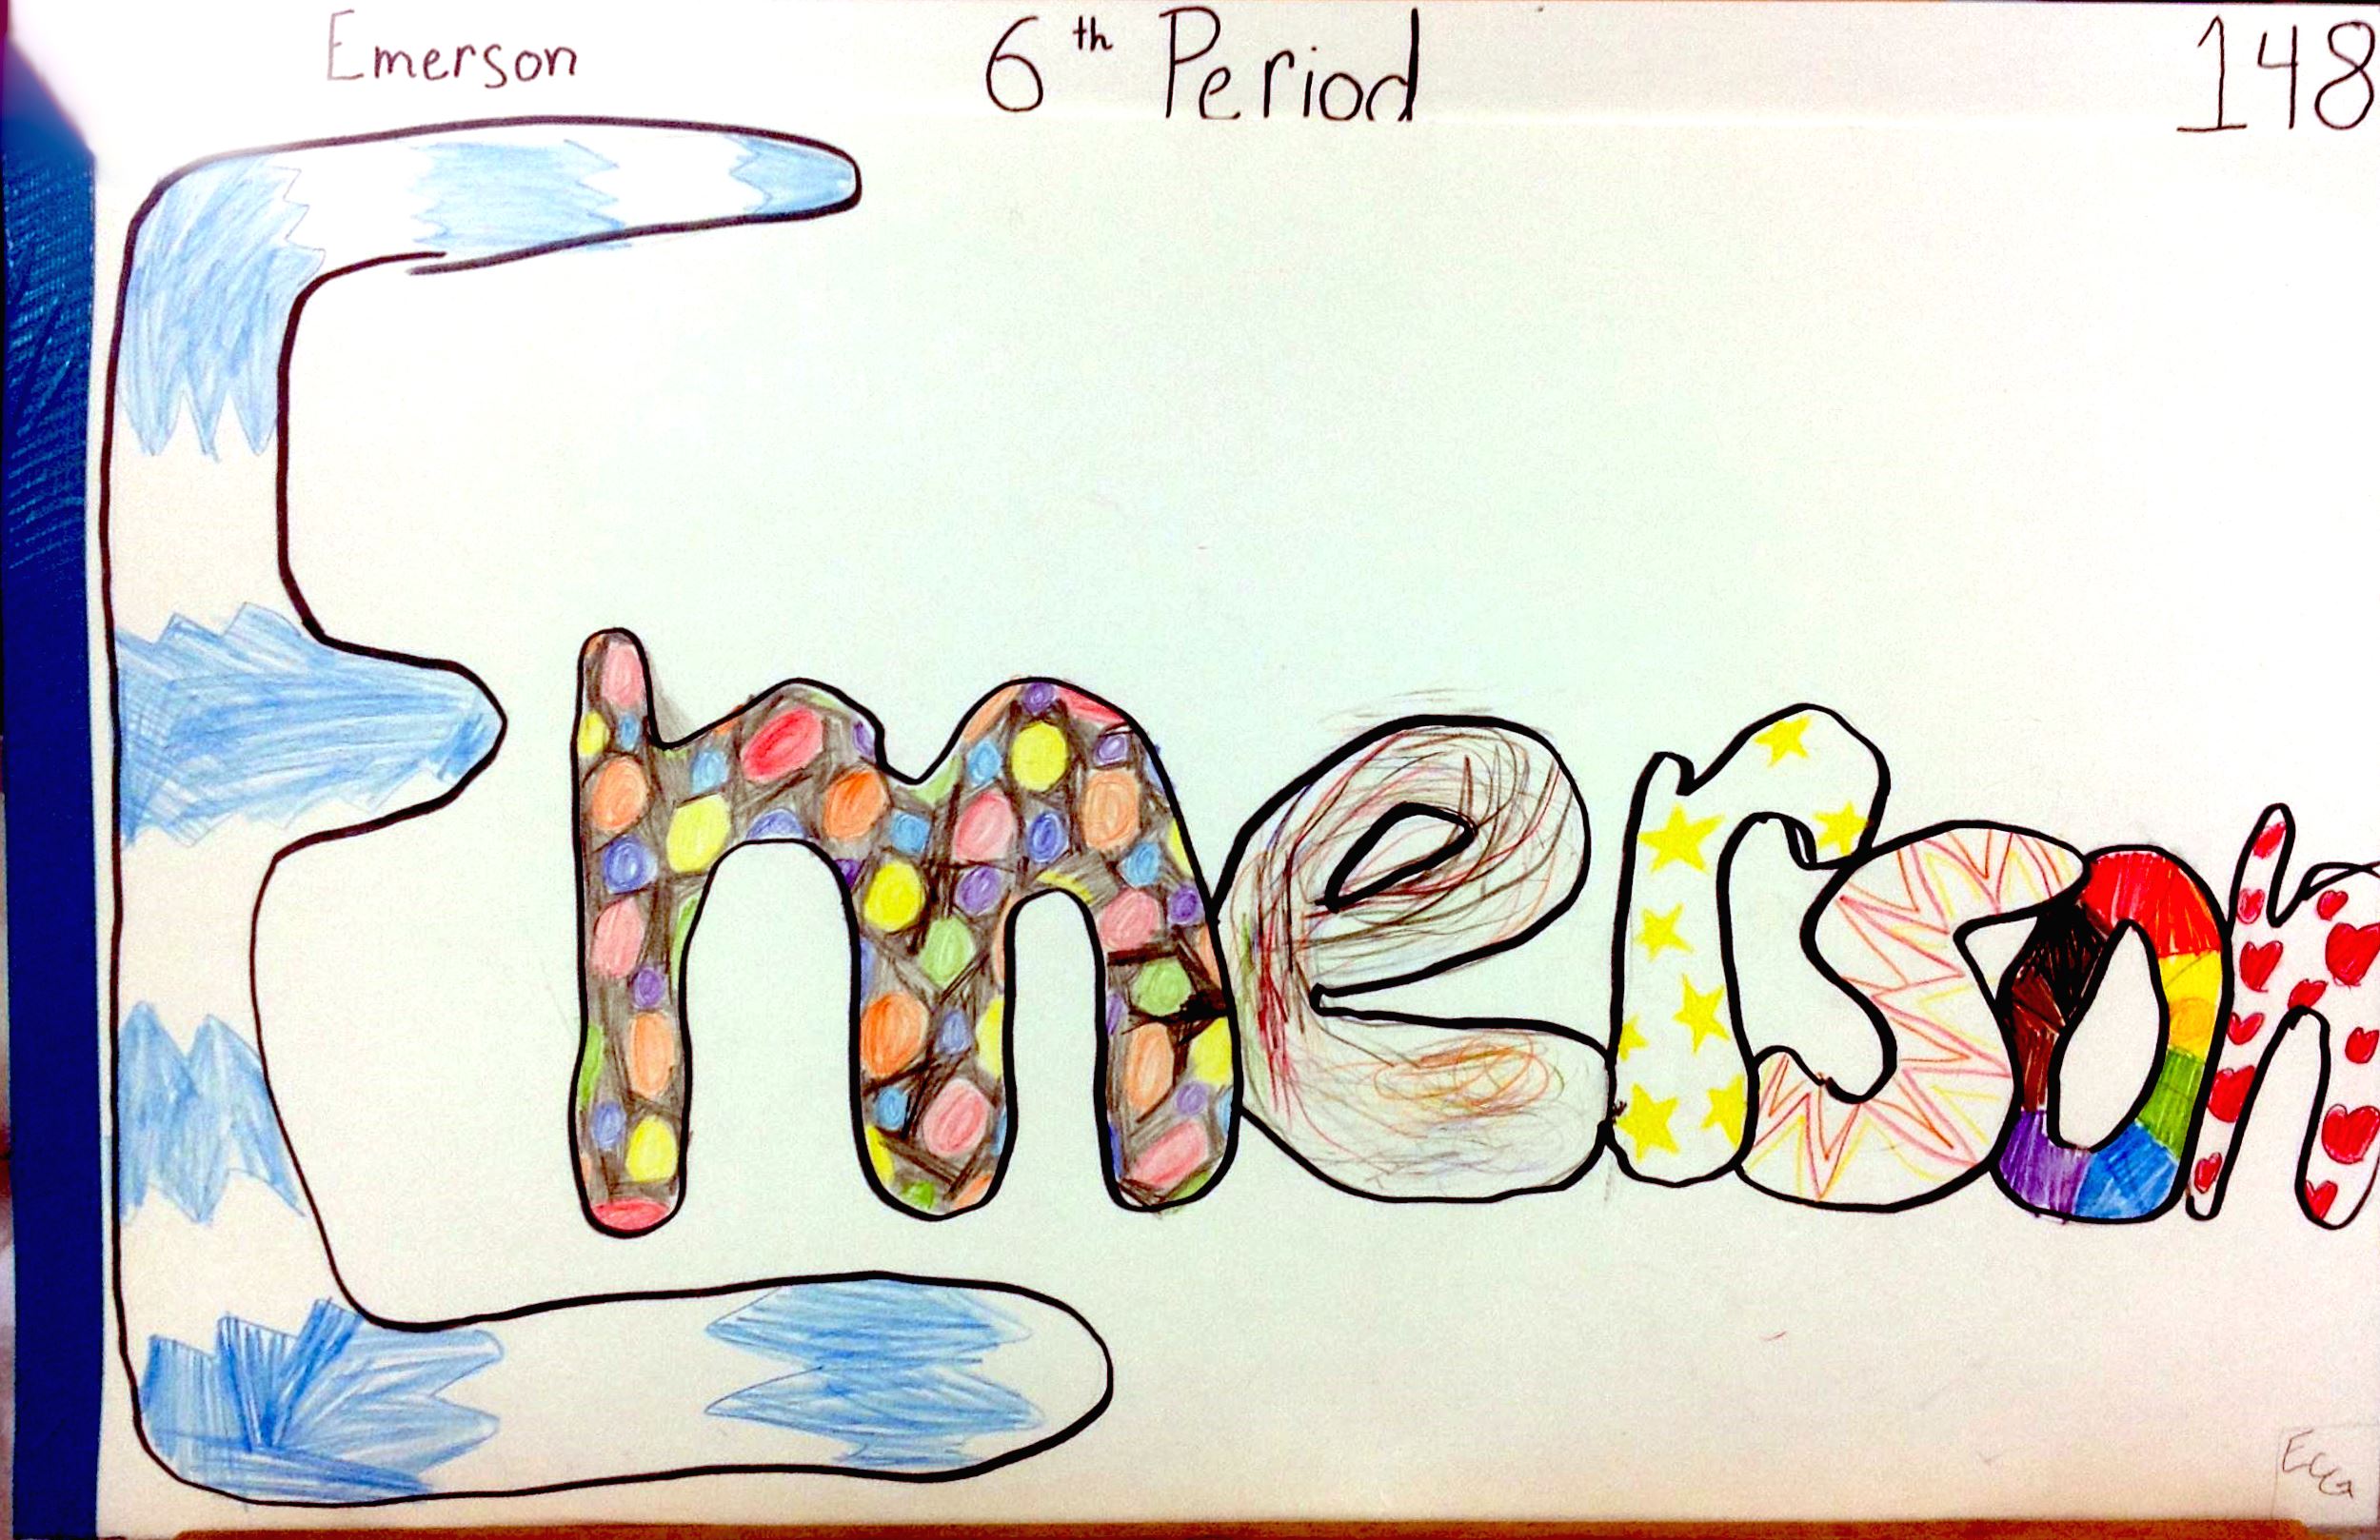 Emerson 6th Period 148
Emerson
ECG